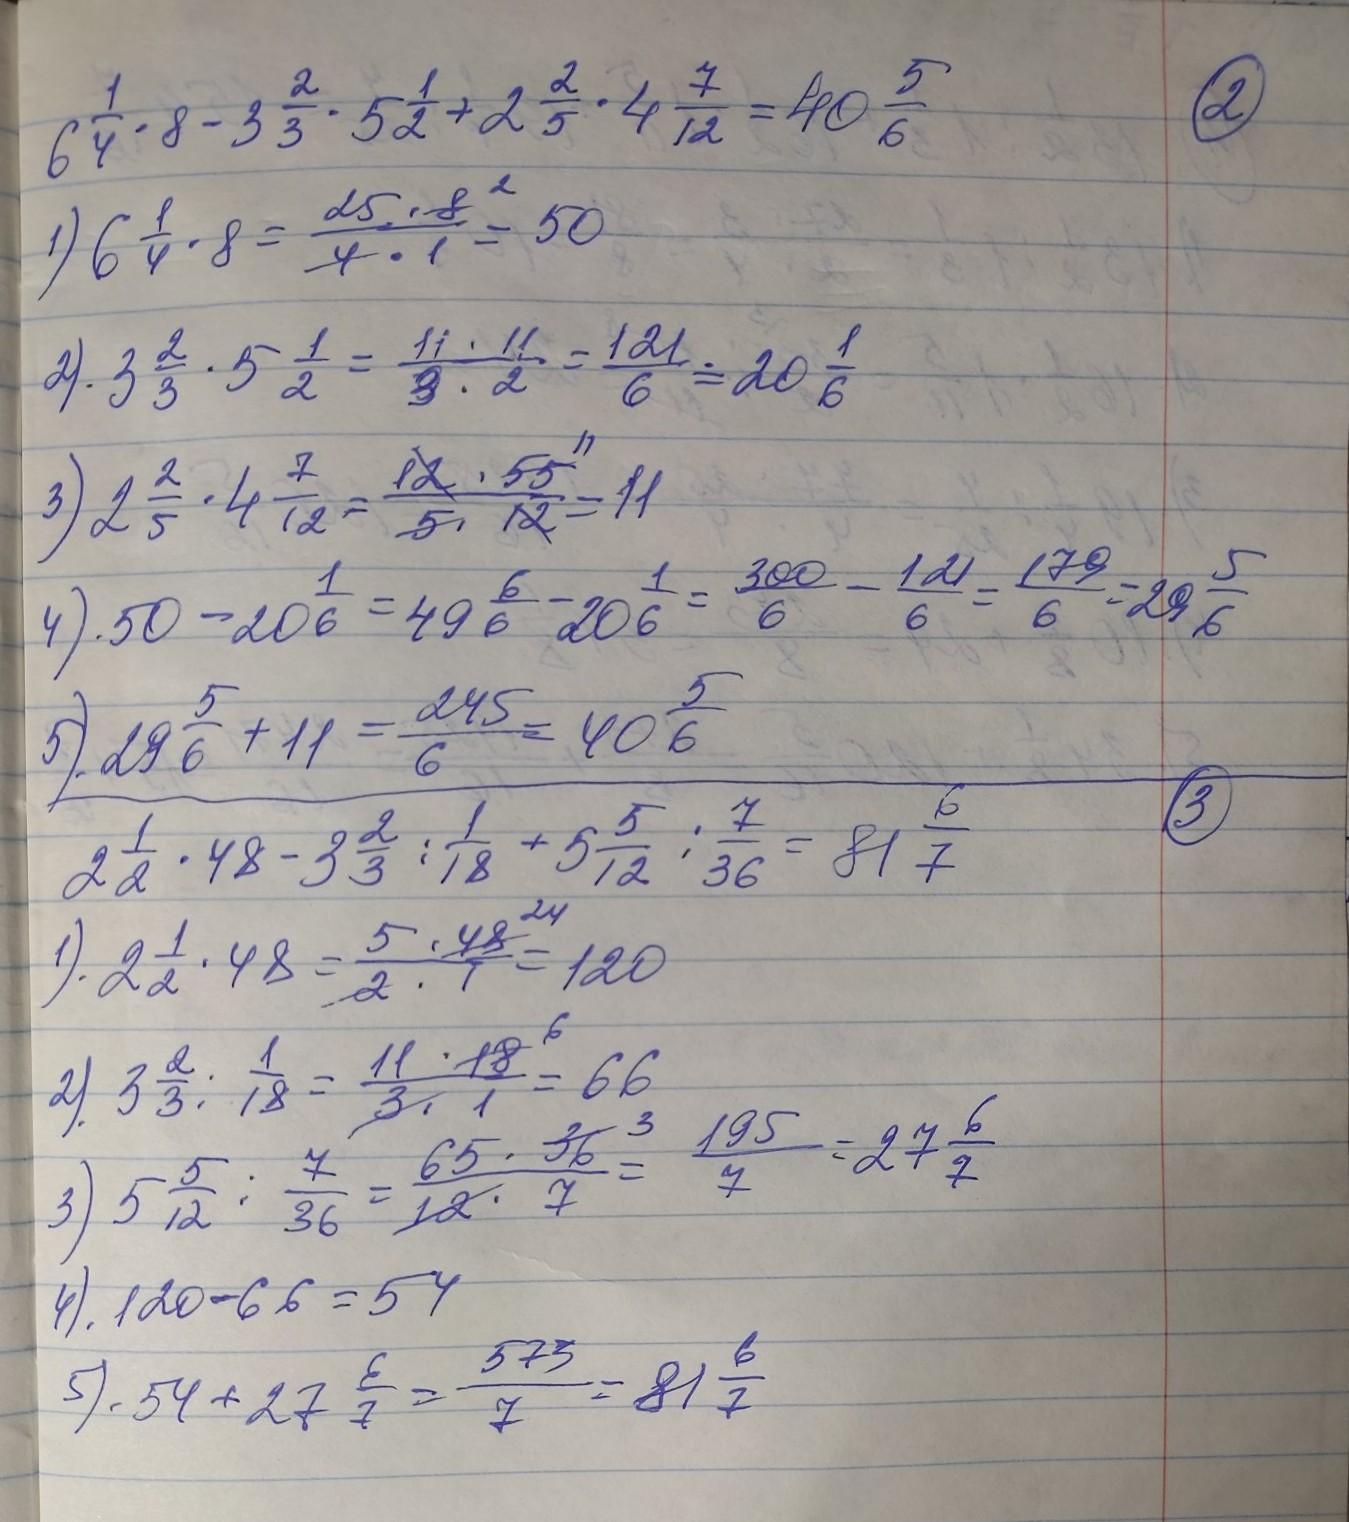 6 1/4 · 8 - 3 2/3 · 5 1/2 + 2 2/5 · 4 7/12 = 40 5/6 ②
1) 6 1/4 · 8 = (25 · 8 2)/(4 · 1) = 50
2). 3 2/3 · 5 1/2 = (11 · 11)/(3 · 2) = 121/6 = 20 1/6
3) 2 2/5 · 4 7/12 = (12 · 55 11)/(5 · 12) = 11
4). 50 - 20 1/6 = 49 6/6 - 20 1/6 = 300/6 - 121/6 = 179/6 = 29 5/6
5). 29 5/6 + 11 = 245/6 = 40 5/6
2 1/2 · 48 - 3 2/3 : 1/18 + 5 5/12 : 7/36 = 81 6/7 ③
1). 2 1/2 · 48 = (5 · 48 24)/(2 · 1) = 120
2). 3 2/3 : 1/18 = (11 · 18 6)/(3 · 1) = 66
3) 5 5/12 : 7/36 = (65 · 36 3)/(12 · 7) = 195/7 = 27 6/7
4). 120 - 66 = 54
5). 54 + 27 6/7 = 573/7 = 81 6/7